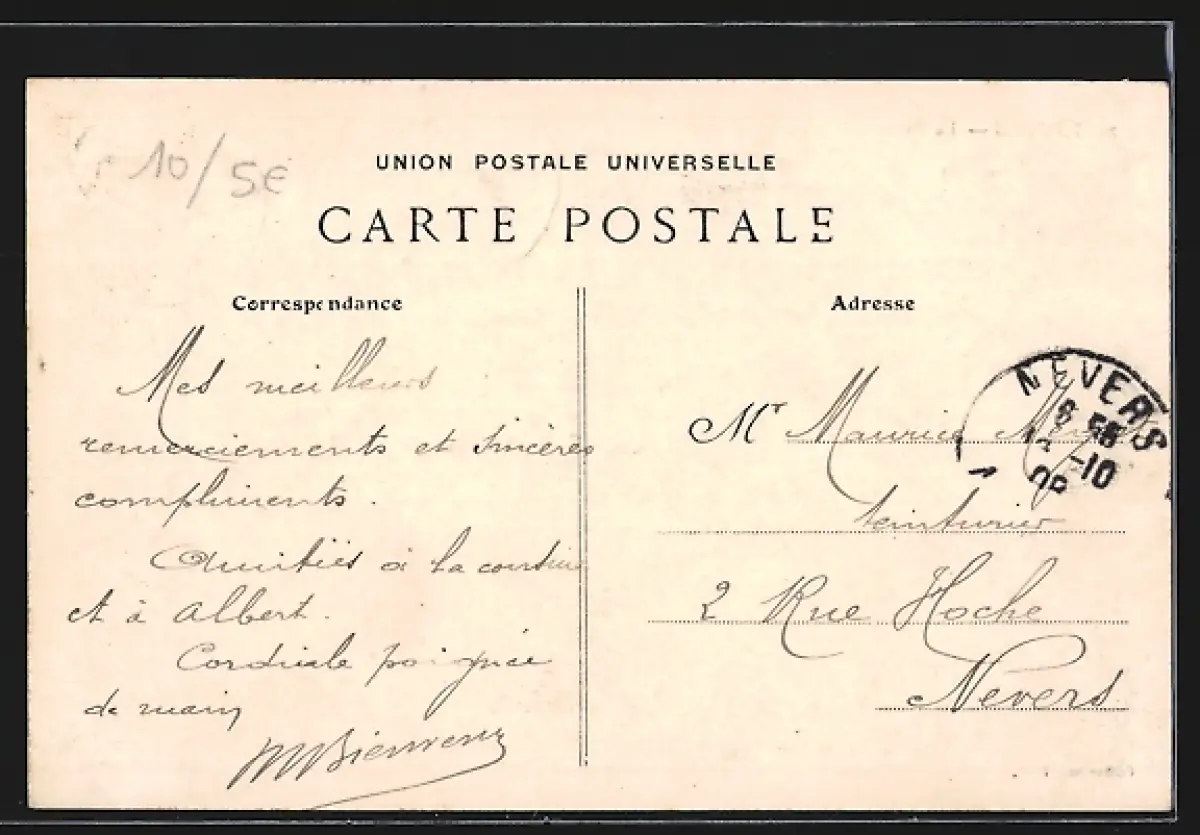 10/5€
UNION POSTALE UNIVERSELLE
CARTE POSTALE
Correspondance
Mes meilleurs
remerciements et sincères
compliments.
Amitiés à la cousine
et à Albert.
Cordiale poignée
de main
MBienvenu
Adresse
Mr Maurice
teinturier
2 Rue Hoche
Nevers
NEVERS
6 55
-10
08